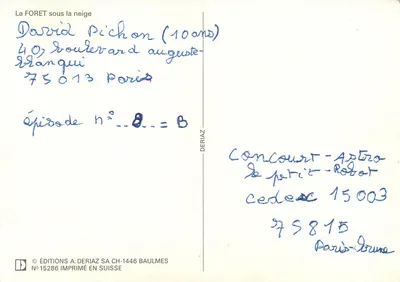 La FORET sous la neige
David Pichon (10 ans)
40, boulevard auguste-
blanqui
75013 Paris
épisode n° 8 = B
DERIAZ
concourt - Astro
le petit - Robot
cedex 15003
75815
Paris-brune
© ÉDITIONS A. DERIAZ SA CH-1446 BAULMES
N° 15286 IMPRIMÉ EN SUISSE